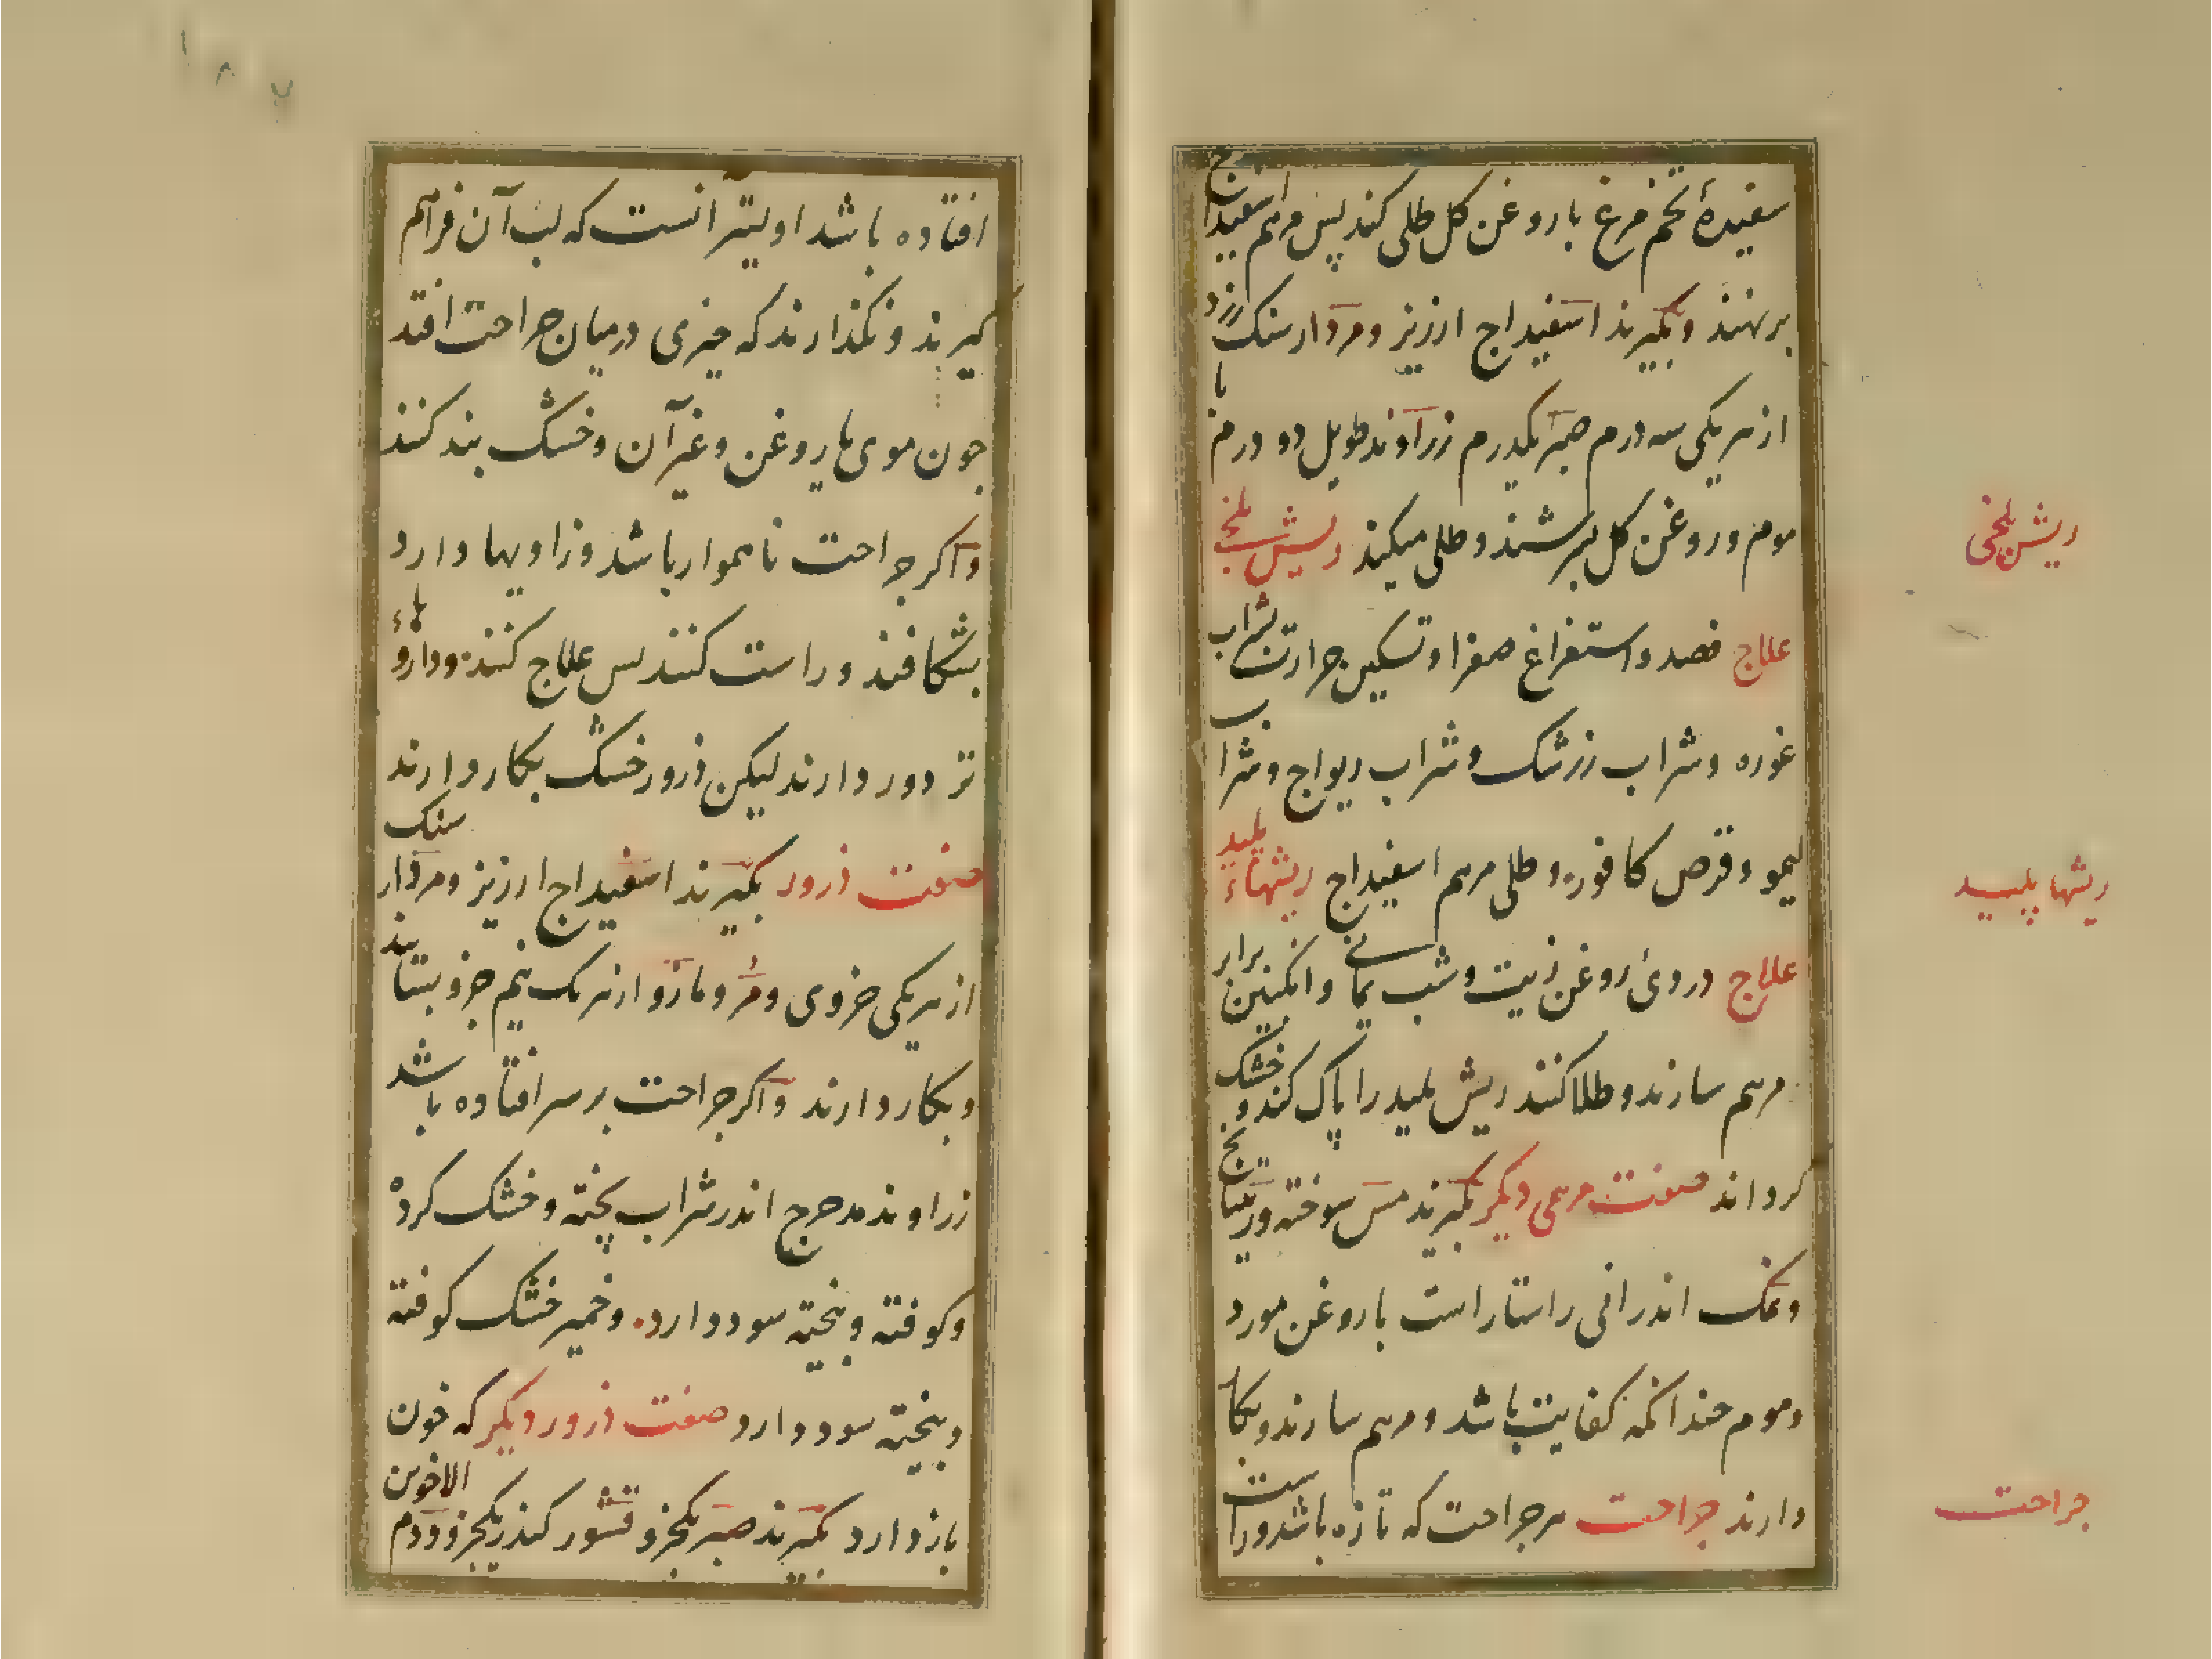 سفیدهٔ تخم مرغ با روغن کل طلی کند پس مرهم اسفیداج
برنهند وبکیرند اسفیداج ارزیز ومردارسنک زرد
از هر یکی سه درم صبر یکدرم زراوند طویل دو درم با
موم وروغن کل بسرشند وطلی میکند ریش بلخی
ریش بلخی
علاج فصد واستفراغ صفرا وتسکین حرارت بشراب
غوره وشراب زرشک وشراب ریواج وشراب
لیمو وقرص کافور وطلی مرهم اسفیداج ریشهاء پلید
ریشها پلید
علاج دردیٔ روغن زیت وشب یمانی وانکبین برابر
مرهم سازند وطلا کنند ریش پلید را پاک کند وخشک
کرداند صفت مرهمی دیکر بکیرند مس سوخته وریتیانج
ونمک اندرانی راستاراست با روغن مورد
وموم چندانکه کفایت باشد ومرهم سازند وبکار
دارند جراحت هر جراحت که تازه باشد وراست
جراحت
۱۸۷
افتاده باشد اولیتر آنست که لب آن فراهم
کیرند ونکذارند که چیزی درمیان جراحت افتد
چون موی یا روغن وغیر آن وخشک بند کنند
واکر جراحت ناهموار باشد وزاویها دارد
بشکافند وراست کنند پس علاج کنند وداروهاء
تر دور دارند لیکن ذرور خشک بکار دارند
صفت ذرور بکیرند اسفیداج ارزیز ومردارسنک
از هر یکی جزوی ومر ومازو از هر یک نیم جزو بستانند
وبکار دارند واکر جراحت بر سر افتاده باشد
زراوند مدحرج اندر شراب پخته وخشک کرده
وکوفته وبیخته سود دارد وخمیر خشک کوفته
وبیخته سود دارد صفت ذرور دیکر که خون
باز دارد بکیرند صبر یکجزو قشور کندر یکجزو ودم الاخوین